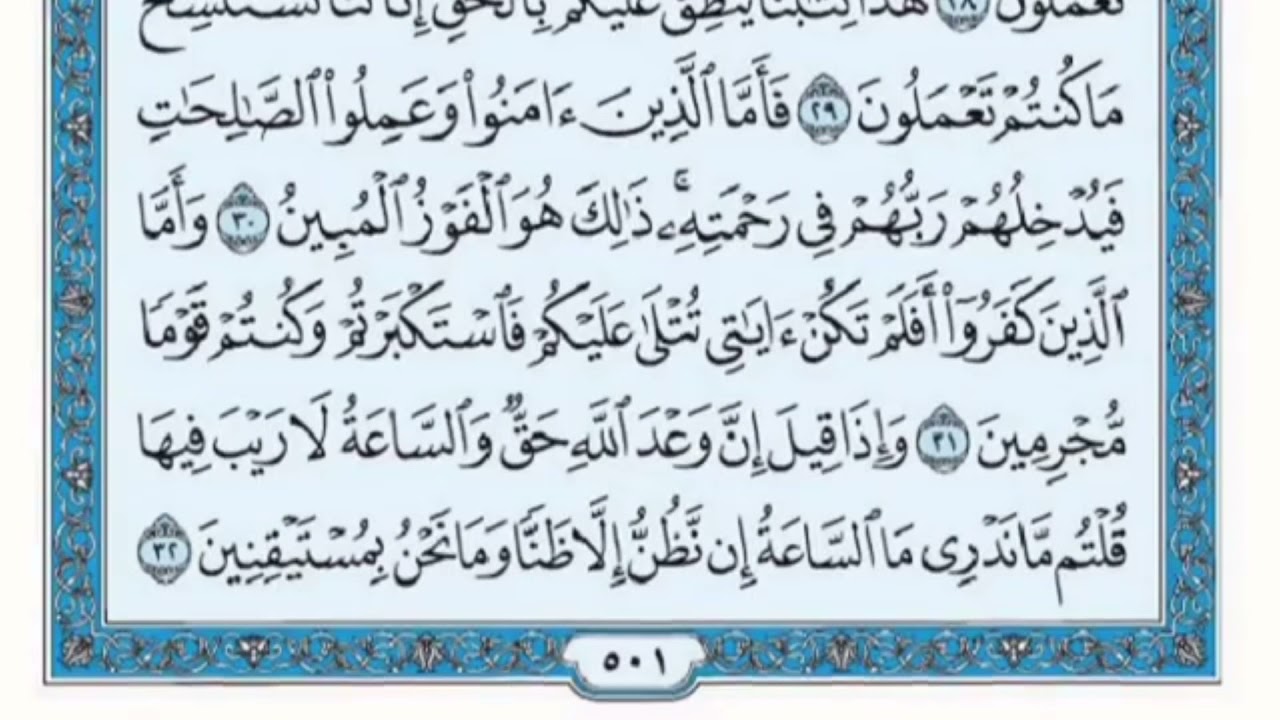 تَعْمَلُونَ ٢٨ هَٰذَا كِتَٰبُنَا يَنطِقُ عَلَيْكُم بِٱلْحَقِّ إِنَّا كُنَّا نَسْتَنسِخُ
مَا كُنتُمْ تَعْمَلُونَ ٢٩ فَأَمَّا ٱلَّذِينَ ءَامَنُوا۟ وَعَمِلُوا۟ ٱلصَّٰلِحَٰتِ
فَيُدْخِلُهُمْ رَبُّهُمْ فِى رَحْمَتِهِۦ ۚ ذَٰلِكَ هُوَ ٱلْفَوْزُ ٱلْمُبِينُ ٣٠ وَأَمَّا
ٱلَّذِينَ كَفَرُوٓا۟ أَفَلَمْ تَكُنْ ءَايَٰتِى تُتْلَىٰ عَلَيْكُمْ فَٱسْتَكْبَرْتُمْ وَكُنتُمْ قَوْمًا
مُّجْرِمِينَ ٣١ وَإِذَا قِيلَ إِنَّ وَعْدَ ٱللَّهِ حَقٌّ وَٱلسَّاعَةُ لَا رَيْبَ فِيهَا
قُلْتُم مَّا نَدْرِى مَا ٱلسَّاعَةُ إِن نَّظُنُّ إِلَّا ظَنًّا وَمَا نَحْنُ بِمُسْتَيْقِنِينَ ٣٢
٥٠١